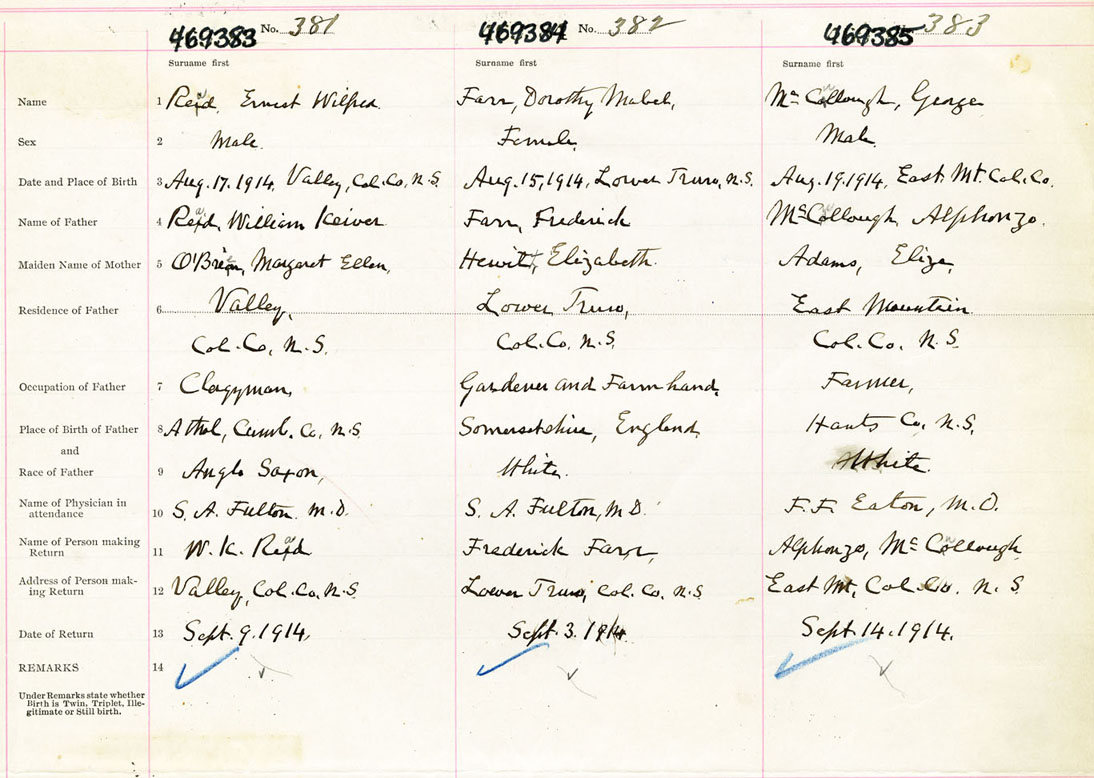 469383 No. 381 469384 No. 382 469385 383
Surname first Surname first Surname first
Name 1 Reid, Ernest Wilfred Farr, Dorothy Mabel, McCollough, George
Sex 2 Male. Female Male
Date and Place of Birth 3 Aug. 17. 1914, Valley, Col. Co, N.S. Aug. 15, 1914, Lower Truro, N.S. Aug. 19. 1914, East Mt. Col. Co.
Name of Father 4 Reid, William Keiver Farr, Frederick McCollough, Alphonzo.
Maiden Name of Mother 5 O'Brien, Margaret Ellen, Hewitt, Elizabeth. Adams, Eliza,
Residence of Father 6 Valley, Lower Truro, East Mountain
Col. Co, N.S. Col. Co, N.S. Col. Co, N.S.
Occupation of Father 7 Clergyman, Gardener and Farm hand, Farmer,
Place of Birth of Father 8 Athol, Cumb. Co, N.S. Somersetshire, England, Hants Co, N.S,
and
Race of Father 9 Anglo Saxon, White. White.
Name of Physician in
attendance 10 S. A. Fulton. M.D. S. A. Fulton, M.D. F. F. Eaton, M.D.
Name of Person making
Return 11 W. K. Reid Frederick Farr, Alphonzo, McCollough,
Address of Person mak-
ing Return 12 Valley, Col. Co. N.S. Lower Truro, Col. Co. N.S. East Mt, Col. Co. N.S
Date of Return 13 Sept. 9. 1914, Sept. 3. 1914. Sept. 14. 1914.
REMARKS 14
Under Remarks state whether
Birth is Twin, Triplet, Ille-
gitimate or Still birth.